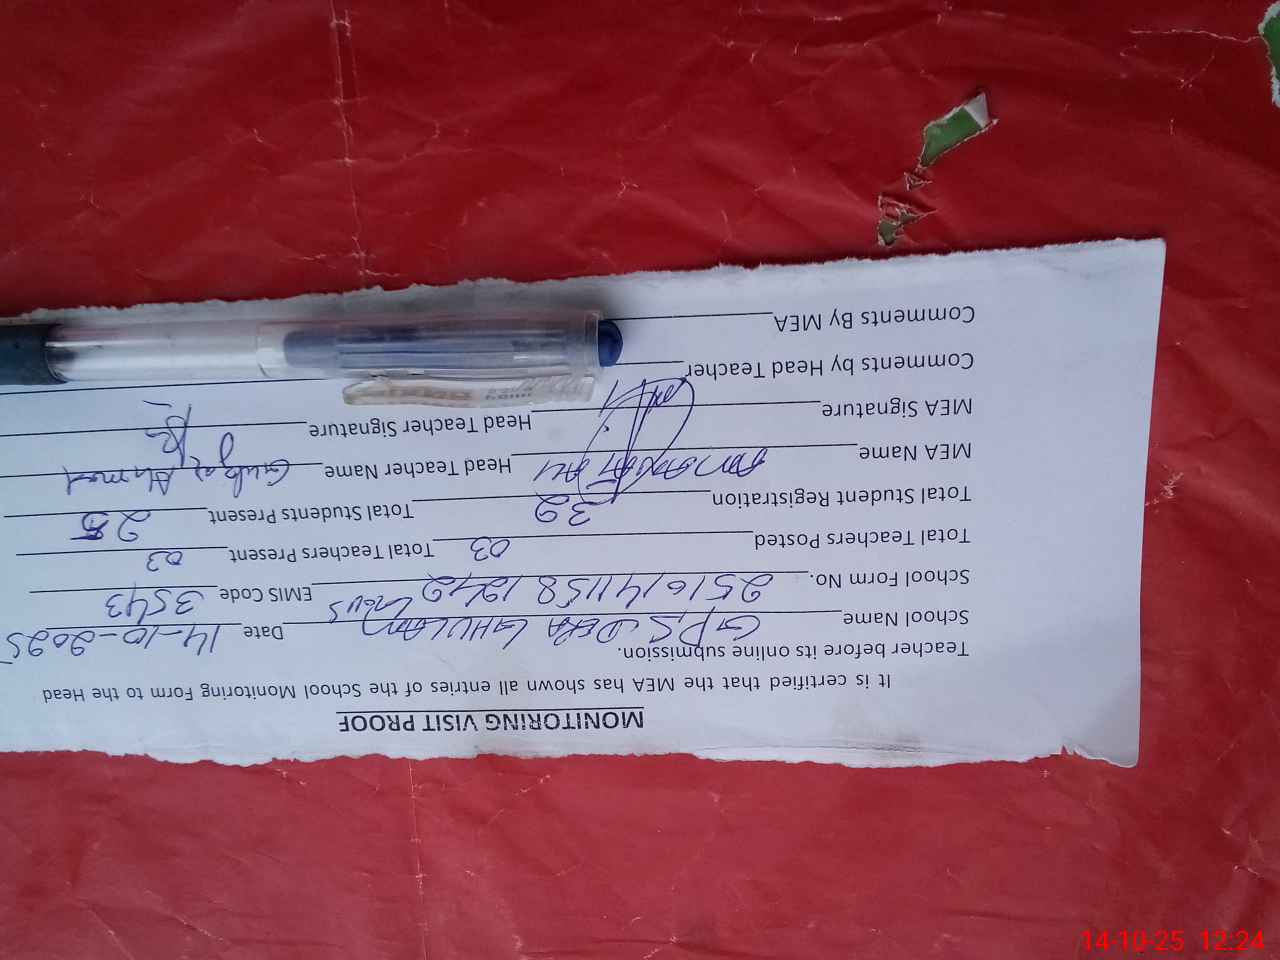 MONITORING VISIT PROOF
It is certified that the MEA has shown all entries of the School Monitoring Form to the Head
Teacher before its online submission.
School Name GPS DERA GHULAM Date 14-10-2025
School Form No. 25161411581242 EMIS Code 3543
Total Teachers Posted 03 Total Teachers Present 03
Total Student Registration 32 Total Students Present 25
MEA Name Head Teacher Name Gulzar Ahmad
MEA Signature Head Teacher Signature
Comments by Head Teacher
Comments By MEA
14-10-25 12:24